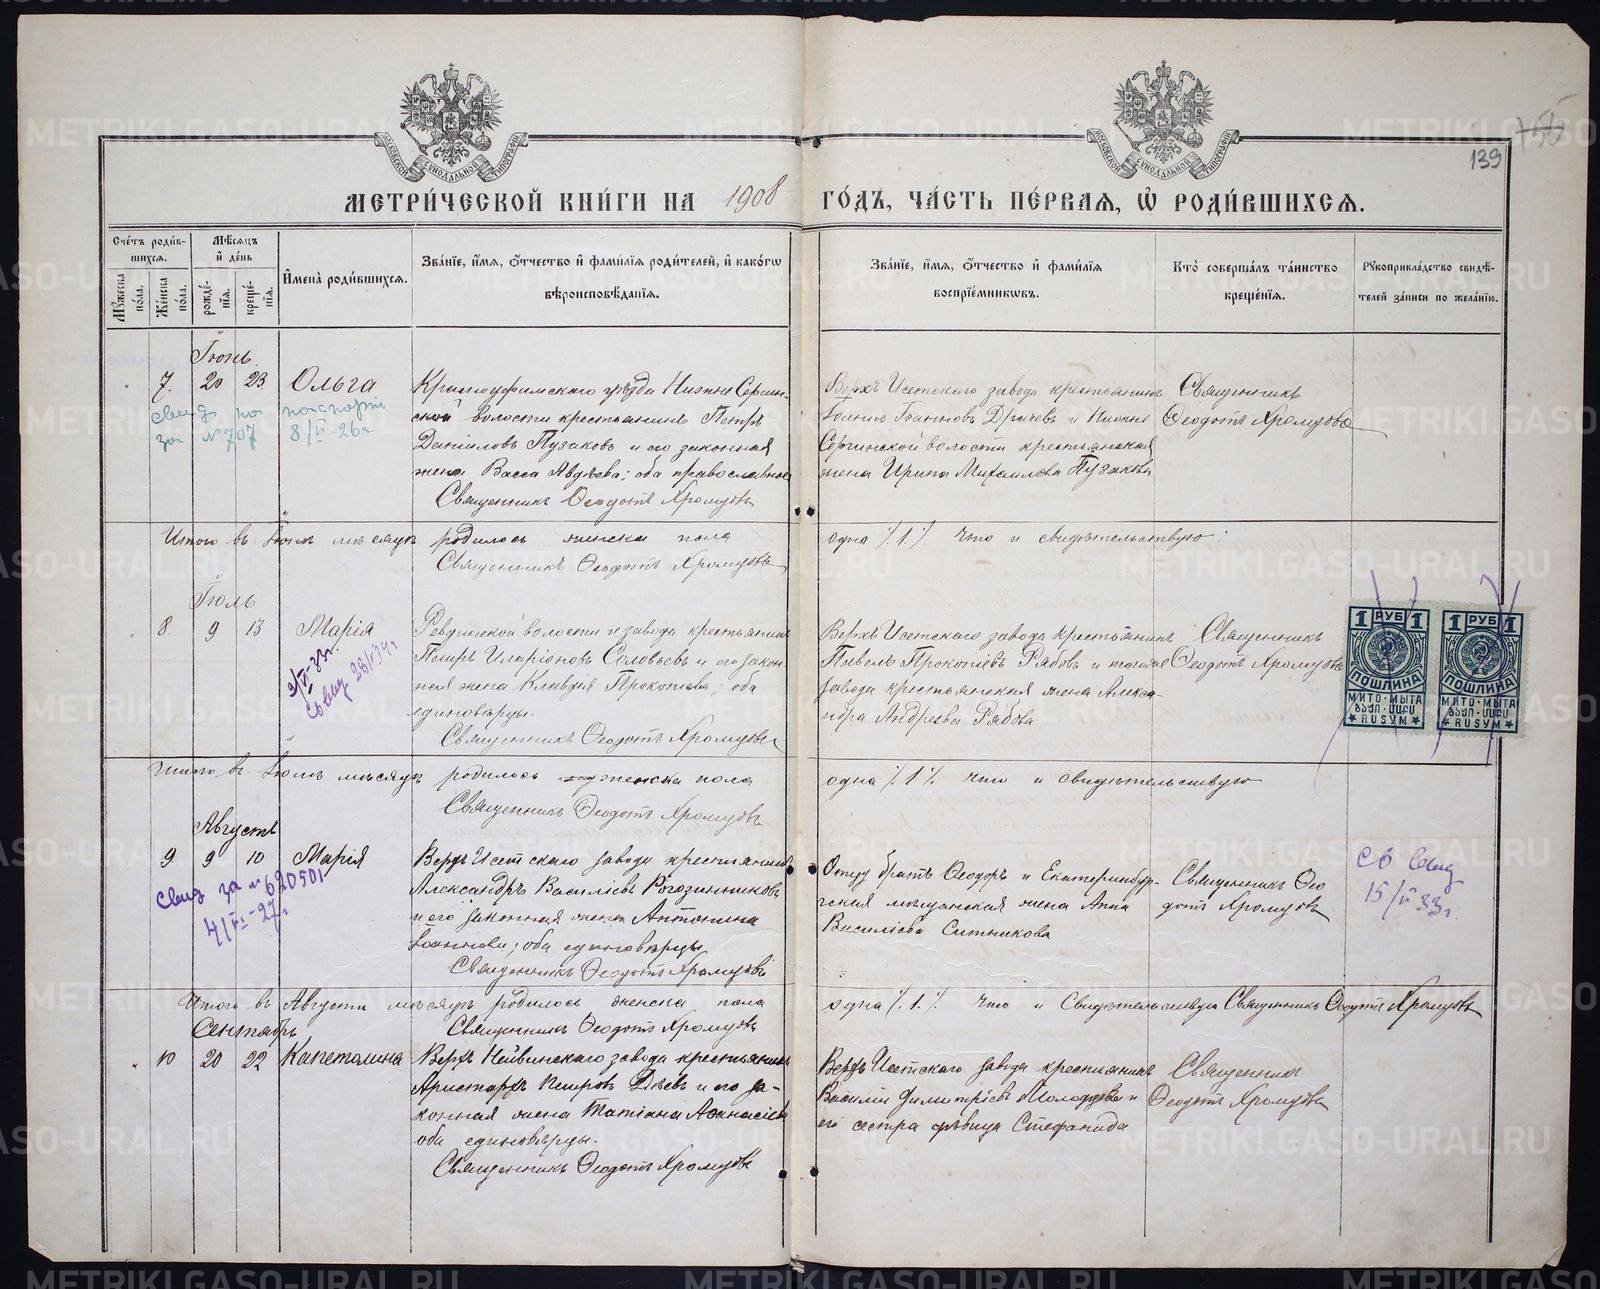 МЕТРИ́ЧЕСКОЙ КНИ́ГИ НА 1908 ГО́ДЪ, ЧА́СТЬ ПЕ́РВАЯ, Ѡ РОДИ́ВШИХСЯ.
139
Сче́тъ роди́в-
шихся.
Мꙋ́жеска по́ла.
Же́нска по́ла.
Мѣ́сяцъ
и҆ де́нь
рожде́-
нїя.
креще́-
нїя.
И҆мена̀ роди́вшихся.
Зва́нїе, и҆́мя, ѻ҆́тчество и҆ фами́лїя роди́телей, и҆ како́гѡ
вѣроисповѣ́данїя.
Зва́нїе, и҆́мя, ѻ҆́тчество и҆ фами́лїя
воспрїе́мникѡвъ.
Кто̀ соверша́лъ та́инство
креще́нїя.
Рꙋкоприкла́дство свидѣ́-
телей за́писи по жела́нїю.
Іюнь.
7. 20 23 Ольга
Красноуфимскаго уѣзда Нижне Сергин-
ской волости крестьянинъ Петръ
Даниловъ Пузаковъ и его законная
жена Васса Авдѣева; оба православные
Священникъ Ѳеодотъ Хромцовъ
Верхъ Исетскаго завода крестьянинъ
Іоаннъ Іоанновъ и Нижне
Сергинской волости крестьянская
жена Ирина Михайлова Пузакова
Священникъ
Ѳеодотъ Хромцовъ
свид по паспорт
за № 707 8/VI-26г
Итого въ Іюнѣ мѣсяцѣ родилось женска пола одна /1/ что и свидѣтельствую:
Священникъ Ѳеодотъ Хромцовъ
Іюль
8. 9 13 Марія
Ревдинской волости и завода крестьянинъ
Петръ Иларіоновъ Соловьевъ и его закон-
ная жена Клавдія Прокопіева; оба
единовѣрцы.
Священникъ Ѳеодотъ Хромцовъ
Верхъ Исетскаго завода крестьянинъ
Павелъ Прокопіевъ Рябовъ и того же
завода крестьянская жена Алекса-
ндра Андреева Рябова
Священникъ
Ѳеодотъ Хромцовъ
1 РУБ 1
ПОШЛИНА
МИТО·МЫТА
RUSYM
1 РУБ 1
ПОШЛИНА
МИТО·МЫТА
RUSYM
Итого въ Іюлѣ мѣсяцѣ родилось женска пола одна /1/ что и свидѣтельствую
Священникъ Ѳеодотъ Хромцовъ
Августъ
9 9 10 Марія
Верхъ Исетскаго завода крестьянинъ
Александръ Василіевъ Рогозинниковъ
и его законная жена Антонина
Іоаннова; оба единовѣрцы
Священникъ Ѳеодотъ Хромцовъ
Отцу братъ Ѳеодоръ и Екатеринбур-
гская мѣщанская жена Анна
Василіева Ситникова
Священникъ Ѳео
дотъ Хромцовъ
Свид за № 620501
4/VI-27г
Св Вид
15/V 33г.
Итого въ Августѣ мѣсяцѣ родилось женска пола одна /1/ что и Свидѣтельствую Священникъ Ѳеодотъ Хромцовъ
Священникъ Ѳеодотъ Хромцовъ
Сентябрь
10 20 22 Капетолина
Верхъ Нейвинскаго завода крестьянинъ
Аристархъ Петровъ и его за-
конная жена Татіана Аѳанасіева
оба единовѣрцы.
Священникъ Ѳеодотъ Хромцовъ
Верхъ Исетскаго завода крестьянинъ
Василій Димитріевъ и
его сестра дѣвица Стефанида
Священникъ
Ѳеодотъ Хромцовъ
METRIKI.GASO-URAL.RU